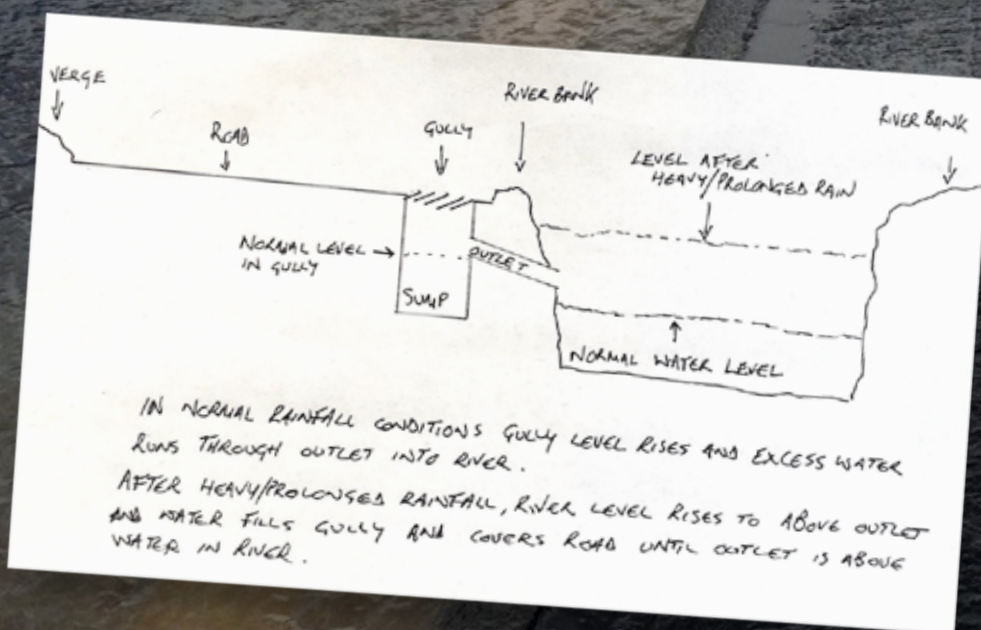 VERGE
ROAD
GULLY
RIVER BANK
RIVER BANK
LEVEL AFTER
HEAVY/PROLONGED RAIN
NORMAL LEVEL
IN GULLY
OUTLET
SUMP
NORMAL WATER LEVEL
IN NORMAL RAINFALL CONDITIONS GULLY LEVEL RISES AND EXCESS WATER
RUNS THROUGH OUTLET INTO RIVER.
AFTER HEAVY/PROLONGED RAINFALL, RIVER LEVEL RISES TO ABOVE OUTLET
AND WATER FILLS GULLY AND COVERS ROAD UNTIL OUTLET IS ABOVE
WATER IN RIVER.